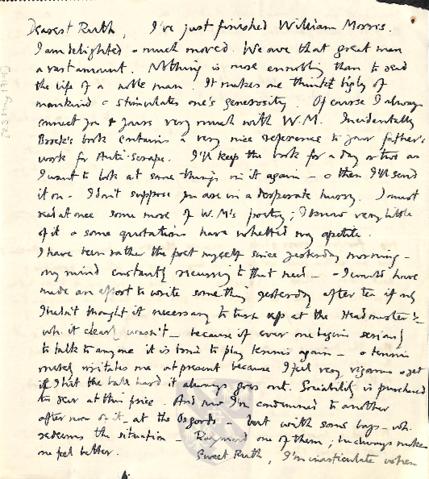 Dearest Ruth, I've just finished William Morris.
I am delighted & much moved. We owe that great man
a vast amount. Nothing is more ennobling than to read
the life of a noble man. It makes one think highly of
mankind & stimulates one's generosity. Of course I always
connect you & yours very much with W.M. Incidentally
Brock's book contains a very nice reference to your father's
work for Anti-Scrape. I'll keep the book for a day or two as
I want to look at some things in it again — & then I'll send
it on. I don't suppose you are in a desperate hurry. I must
read at once some more of W.M's poetry; I know very little
of it & some quotations have whetted my appetite.
I have been rather the poet myself since yesterday morning —
my mind constantly recurring to that need — & I would have
made an effort to write something yesterday after tea if we
hadn't thought it necessary to turn up at the Headmaster's
wh. it clearly wasn't — because if ever one begins seriously
to talk to anyone it is time to play tennis again — & tennis
merely irritates me at present because I feel very vigorous & yet
if I hit the ball hard it always goes out. Sociability is purchased
too dear at this price. And now I'm condemned to another
afternoon of it — at the Osgoods — but with some boys — wh.
redeems the situation — Raymond one of them; he always makes
me feel better.
Sweet Ruth, I'm inarticulate when